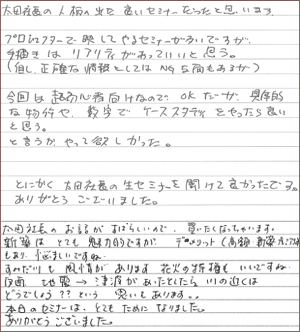 太田社長の人柄の出た良いセミナーだったと思います。
プロジェクターで映してやるセミナーが多いですが、
手描きはリアリティがあっていいと思う。
(但し、正確な情報としてはNGな面もあるが)
今回は超初心者向けなので、OKだが、具体的
な物件や、数字でケーススタディをやったら良い
と思う。
と言うか、やって欲しかった。
とにかく太田社長の生セミナーを聞けて良かったです。
ありがとうございました。
太田社長のお話がすばらしいので、買いたくなっちゃいます。
新築はとても魅力的ですが デメリット(高額
もあり、悩ましいですね
すみだ川も風情があります 花火の特権もいいですね
反面 地震→津波があったとしたら 川の近くは
どうでしょう??という 思いもあります。
本日のセミナーは、とてもためになりました。
ありがとうございました。